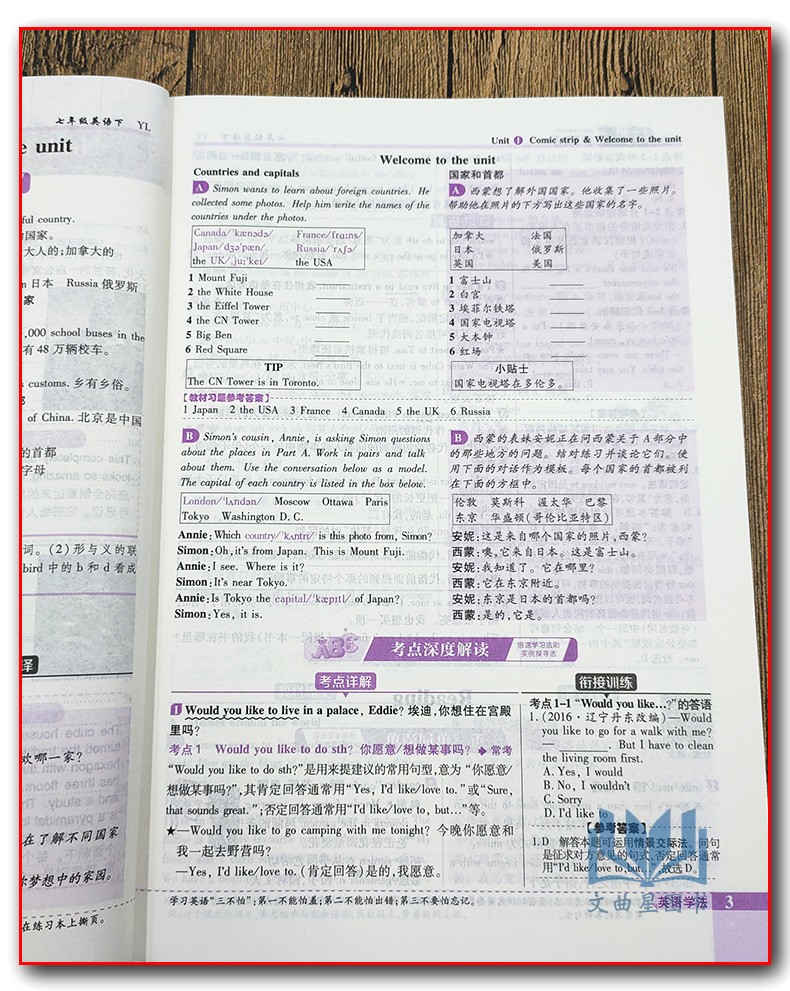 七年级英语下 YL
e unit
ful country.
的国家。
大人的;加拿大的
日本 Russia 俄罗斯
家
,000 school buses in the
有 48 万辆校车。
customs. 乡有乡俗。
of China. 北京是中国
的首都
字母
词。(2)形与义的联
bird 中的 b 和 d 看成
欢哪一家?
在了解不同国家
你梦想中的家园。
在练习本上撕页。
Unit 1 Comic strip & Welcome to the unit
Welcome to the unit
Countries and capitals
A Simon wants to learn about foreign countries. He
collected some photos. Help him write the names of the
countries under the photos.
Canada/ˈkænədə/ France/frɑːns/
Japan/dʒəˈpæn/ Russia/ˈrʌʃə/
the UK/ˌjuːˈkeɪ/ the USA
1 Mount Fuji ______
2 the White House ______
3 the Eiffel Tower ______
4 the CN Tower ______
5 Big Ben ______
6 Red Square ______
TIP
The CN Tower is in Toronto.
【教材习题参考答案】
1 Japan 2 the USA 3 France 4 Canada 5 the UK 6 Russia
B Simon's cousin, Annie, is asking Simon questions
about the places in Part A. Work in pairs and talk
about them. Use the conversation below as a model.
The capital of each country is listed in the box below.
London/ˈlʌndən/ Moscow Ottawa Paris
Tokyo Washington D. C.
Annie: Which country/ˈkʌntri/ is this photo from, Simon?
Simon: Oh, it's from Japan. This is Mount Fuji.
Annie: I see. Where is it?
Simon: It's near Tokyo.
Annie: Is Tokyo the capital/ˈkæpɪtl/ of Japan?
Simon: Yes, it is.
国家和首都
A 西蒙想了解外国国家。他收集了一些照片。
帮助他在照片的下方写出这些国家的名字。
加拿大 法国
日本 俄罗斯
英国 美国
1 富士山 ______
2 白宫 ______
3 埃菲尔铁塔 ______
4 国家电视塔 ______
5 大本钟 ______
6 红场 ______
小贴士
国家电视塔在多伦多。
B 西蒙的表妹安妮正在问西蒙关于 A 部分中
的那些地方的问题。结对练习并谈论它们。使
用下面的对话作为模板。每个国家的首都被列
在下面的方框中。
伦敦 莫斯科 渥太华 巴黎
东京 华盛顿(哥伦比亚特区)
安妮:这是来自哪个国家的照片,西蒙?
西蒙:噢,它来自日本。这是富士山。
安妮:我知道了。它在哪里?
西蒙:它在东京附近。
安妮:东京是日本的首都吗?
西蒙:是的,它是。
ABC 考点深度解读 倍速学习法则
实例探寻法
考点详解
1 Would you like to live in a palace, Eddie? 埃迪,你想住在宫殿
里吗?
考点1 Would you like to do sth? 你愿意/想做某事吗? 常考
“Would you like to do sth?”是用来提建议的常用句型,意为“你愿意/
想做某事吗?”,其肯定回答通常用“Yes, I'd like/love to.”或“Sure,
that sounds great.”;否定回答通常用“I'd like/love to, but…”等。
★—Would you like to go camping with me tonight? 今晚你愿意和
我一起去野营吗?
—Yes, I'd like/love to. (肯定回答)是的,我愿意。
衔接训练
考点1-1 “Would you like…?”的答语
1. (2016·辽宁丹东改编)—Would
you like to go for a walk with me?
—________. But I have to clean
the living room first.
A. Yes, I would
B. No, I wouldn't
C. Sorry
D. I'd like to
【参考答案】
1. D 解答本题可运用情景交际法。问句
是征求对方意见的句式,否定回答通常
用“I'd like/love to, but…”,故选 D。
学习英语“三不怕”:第一不能怕羞;第二不能怕出错;第三不要怕忘记。
英语学法 3
文曲星图书